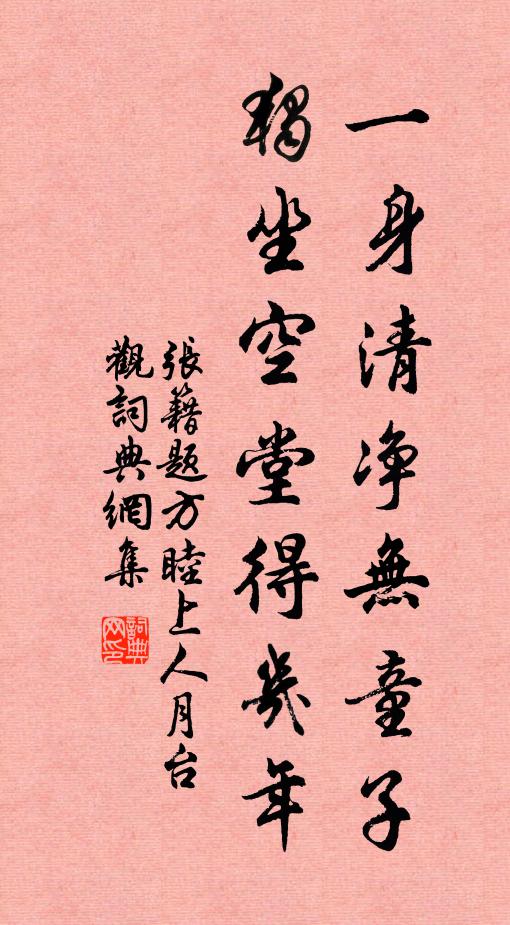 一身清净無童子
獨坐空堂得幾年
張籍題方睦上人月台
觀詞典網集
詞典
网印